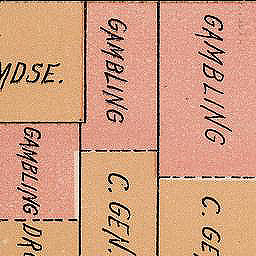 MDSE.
GAMBLING
GAMBLING
GAMBLING
C. GEN.
C. GE
DR